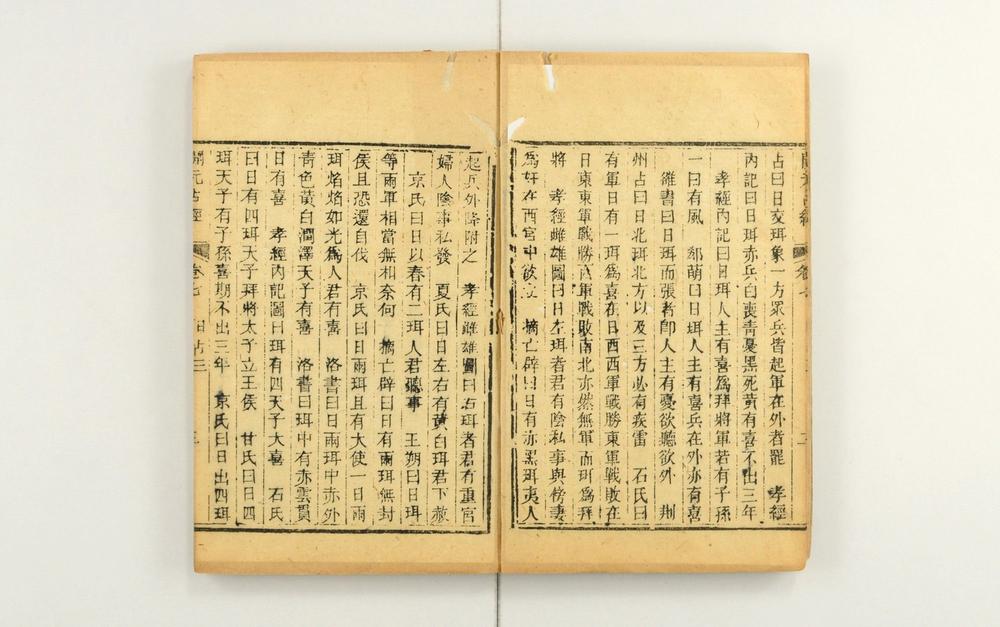 占曰日交珥象一方眾兵皆起軍在外者罷 孝經
內記曰日珥赤兵白喪青憂黑死黃有喜不出三年
孝經內記曰日珥人主有喜為拜將軍若有子孫
一曰有風 郗萌曰日珥人主有喜兵在外亦有喜
雒書曰日珥而張者即人主有憂欲聽欲外 荆
州占曰日北珥北方以及三方必有疾雷 石氏曰
有軍日有一珥為喜在日西西軍戰勝東軍戰敗在
日東東軍戰勝西軍戰敗南北亦然無軍而珥為拜
將 孝經雌雄圖曰日左珥者君有陰私事與傍妻
為奸在西宮中欲 摘亡辟曰日有赤黑珥夷人
起兵外降附之 孝經雌雄圖曰右珥者君有重宮
婦人陰事私發 夏氏曰日左右有黃白珥君下赦
京氏曰日以春有二珥人君聽事 王朔曰日珥
等兩軍相當無和奈何 摘亡辟曰日有兩珥無封
侯且恐還自伐 京氏曰日兩珥且有大使一曰兩
珥焰焰如光為人君有喜 洛書曰日兩珥中赤外
青色黃白潤澤天子有喜 洛書曰珥中有赤雲貫
日有喜 孝經內記圖曰珥有四天子大喜 石氏
曰日有四珥天子拜將太子立王侯 甘氏曰日四
珥天子有子孫喜期不出三年 京氏曰日出四珥
開元占經 卷七 日占三 三